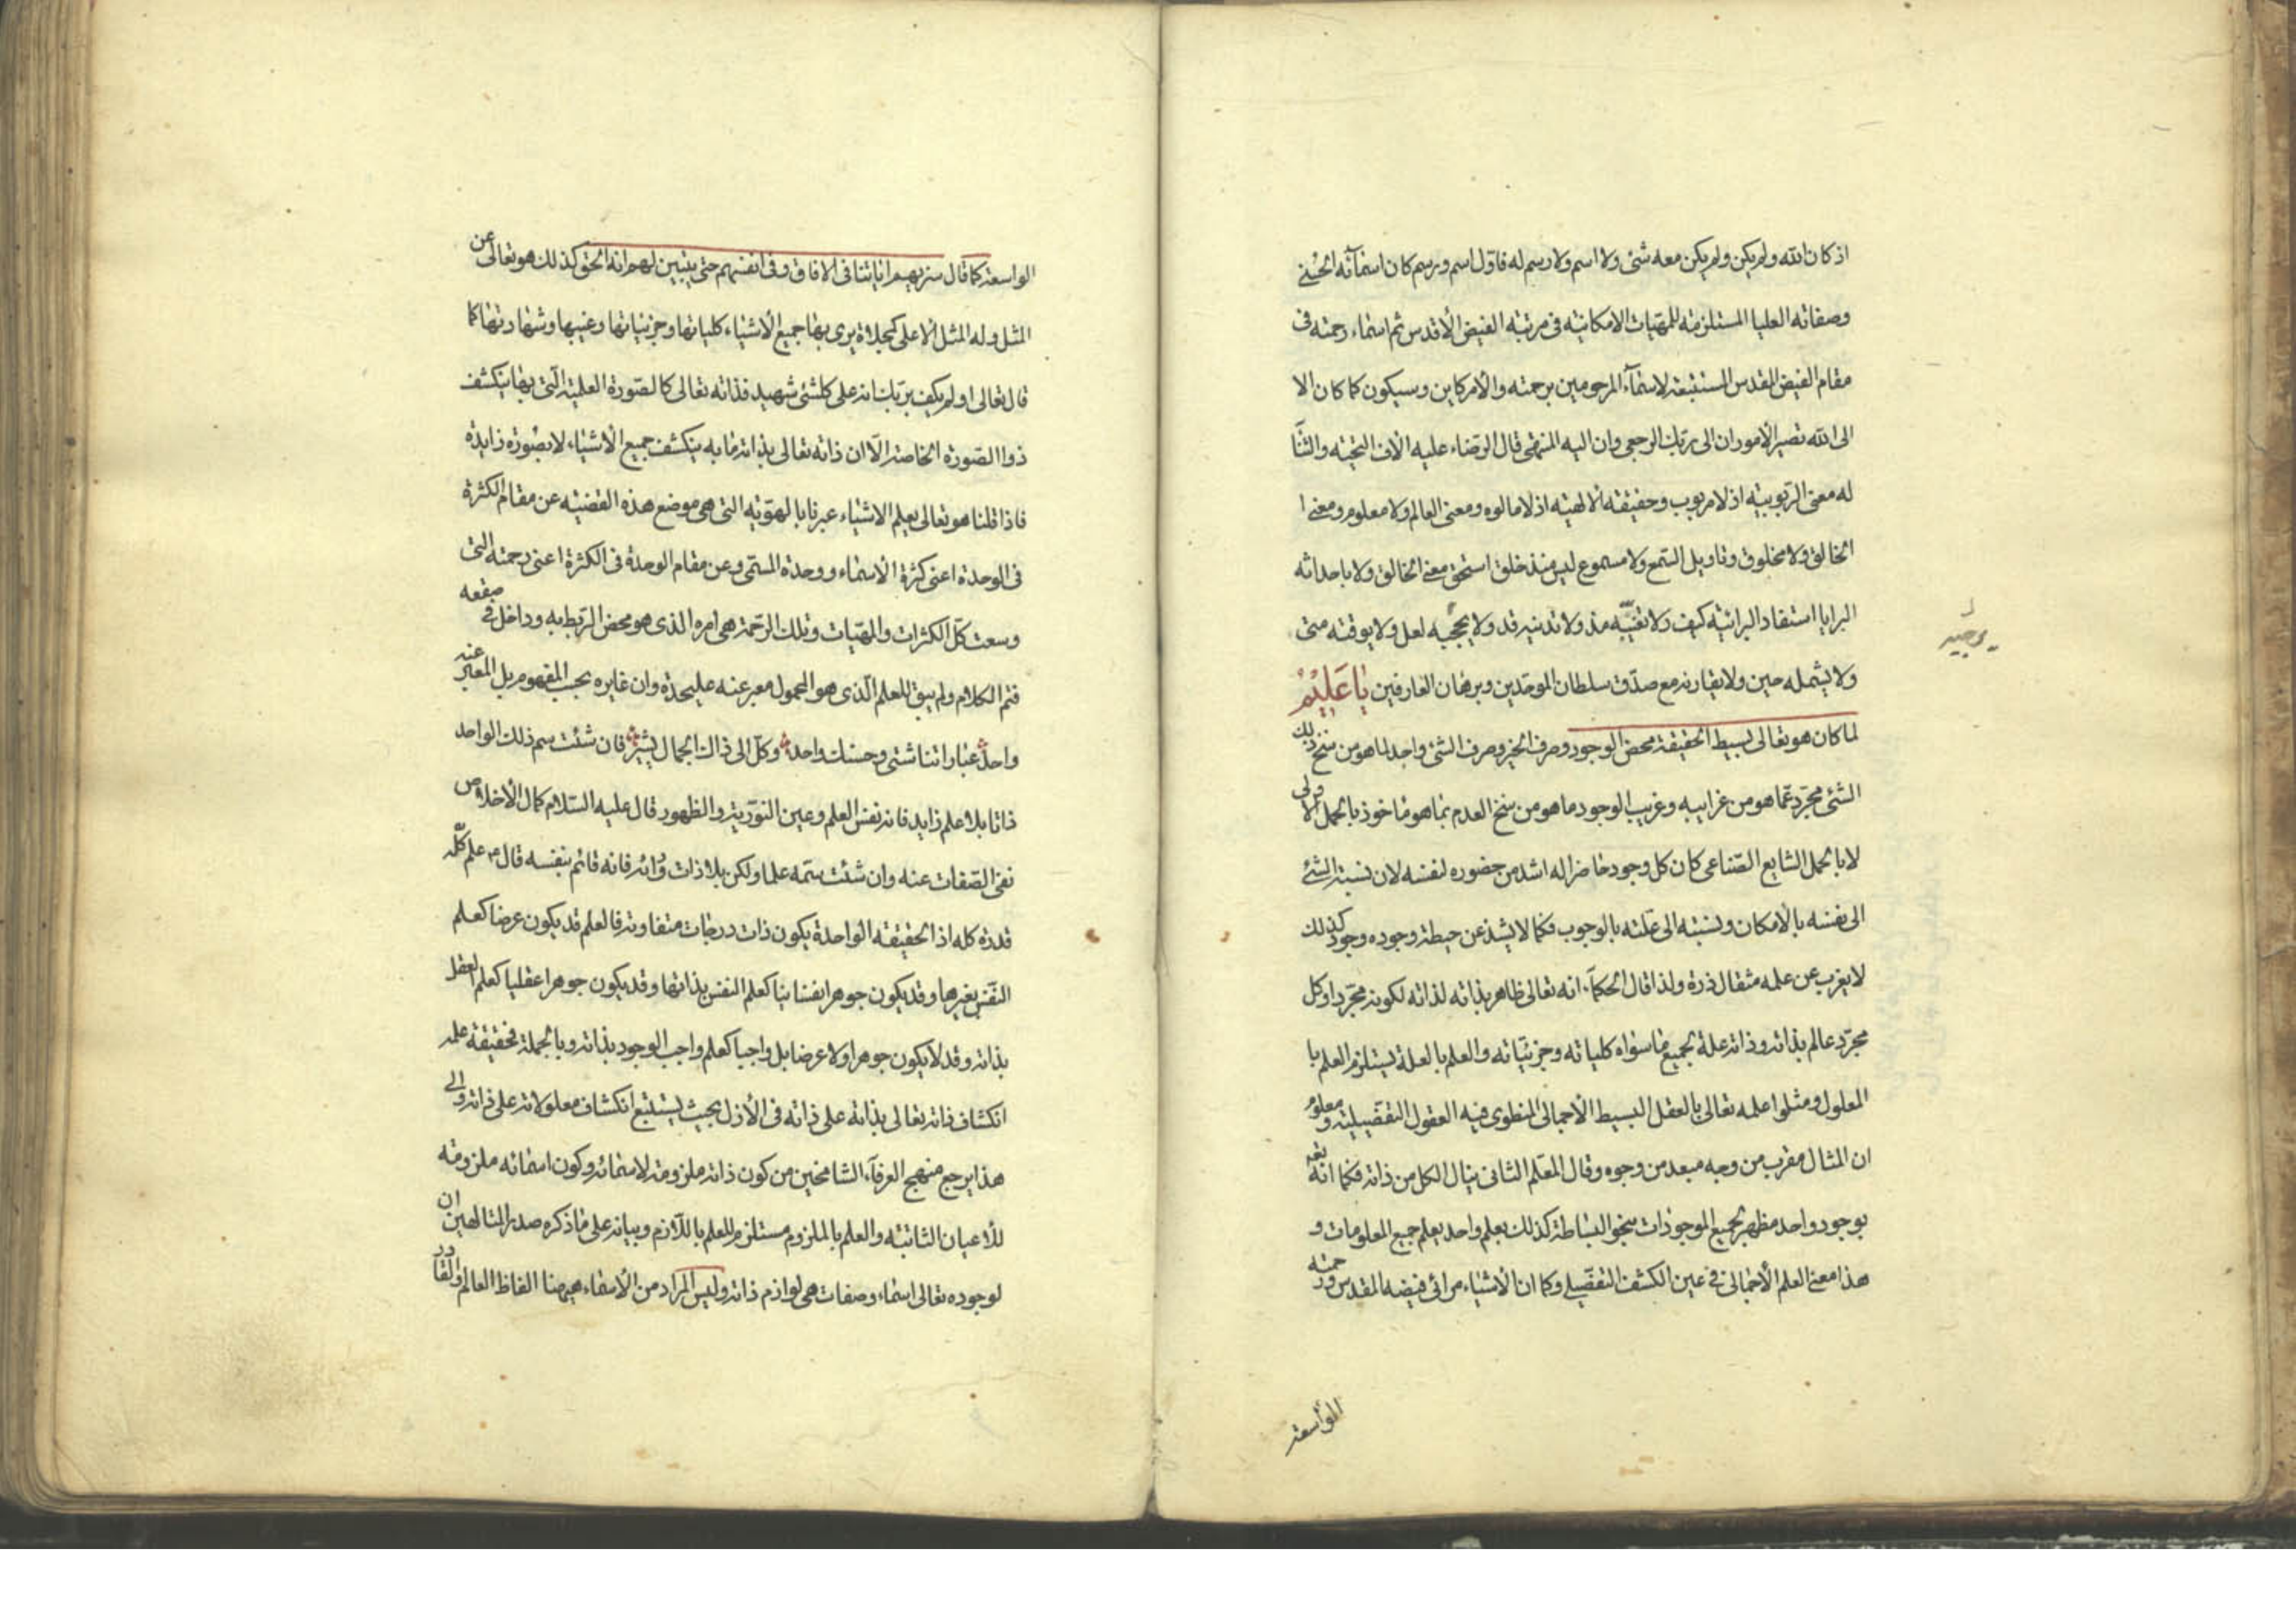 اذ كان الله ولم يكن ولم يكن معه شئ ولا اسم ولا رسم له فاول اسم ورسم كان اسمآئه الحسنى
وصفاته العليا المستلزمة للمهيات الامكانية فى مرتبة الفيض الأقدس ثم اسماء رحمته فى
مقام الفيض المقدس المستتبعة لاسمآء المرحومين برحمته والأمر كاين وسيكون كما كان الا
الى الله تصير الأمور ان الى ربك الرجعى وان اليه المنتهى قال الرضاء عليه الاف التحية والثنآ
له معنى الربوبية اذ لا مربوب وحقيقة الالهية اذ لا مالوه ومعنى العالم ولا معلوم ومعنى ا
الخالق ولا مخلوق وتاويل السمع ولا مسموع ليس منذ خلق استحق معنى الخالق ولا باحداثه
البرايا استفاد البرائية كيف ولا تغيبه مذ ولا تدنيه قد ولا يحجبه لعل ولا يوقته متى
ولا يشمله حين ولا يقارنه مع صدق سلطان الموحدين وبرهان العارفين يَا عَلِيْمُ
لما كان هو تعالى بسيط الحقيقة محض الوجود وصرف الخير وصرف الشئ واجد لما هو من سنخ ذلك
الشئ مجرّد عما هو من غرايبه وغريب الوجود ما هو من سنخ العدم بما هو ماخوذ بالحمل الاولى
لا بالحمل الشايع الصناعى كان كل وجود حاضرا له اشد من حضوره لنفسه لان نسبة الشئ
الى نفسه بالأمكان ونسبته الى علته بالوجوب فكما لا يشذ عن حيطة وجوده وجود كذلك
لا يعزب عن علمه مثقال ذرة ولذا قال الحكمآء انه تعالى ظاهر بذاته لذاته لكونه مجردا وكل
مجرّد عالم بذاته وذاته علة لجميع ما سواه كلياته وجزئياته والعلم بالعلة يستلزم العلم با
المعلول ومثلوا علمه تعالى بالعقل البسيط الأجمالى المنطوى فيه العقول التفصيلية ومعلوم
ان المثال مقرب من وجه مبعد من وجوه وقال المعلم الثانى ينال الكل من ذاته فكما انه تعالى
بوجود واحد مظهر لجميع الموجودات بنحو البساطة كذلك بعلم واحد يعلم جميع المعلومات و
هذا معنى العلم الأجمالى فى عين الكشف التفصيلى وكما ان الأشياء مرائى فيضه المقدس ورحمته
الواسعة
الواسعة كما قال سنريهم اياتنا فى الافاق وفى انفسهم حتى يتبين لهم انه الحق كذلك هو تعالى عن
المثل وله المثل الأعلى كمجلاة يرى بها جميع الأشياء كلياتها وجزئياتها وغيبها وشهادتها كما
قال تعالى اولم يكف بربك انه على كلشئ شهيد فذاته تعالى كالصورة العلمية التى بها ينكشف
ذو الصورة الخاصة الّا ان ذاته تعالى بذاته ما به ينكشف جميع الأشياء لا بصورة زايدة
فاذا قلنا هو تعالى يعلم الاشياء عبرنا بالهوّية التى هى موضع هذه القضية عن مقام الكثرة
فى الوحدة اعنى كثرة الأسماء ووحدة المسمى وعن مقام الوحدة فى الكثرة اعنى رحمته التى
وسعت كلّ الكثرات والمهيات وتلك الرحمة هى امره الذى هو محض الربط به وداخل فى صقعه
فتم الكلام ولم يبق للعلم الذى هو المحمول معبر عنه عليحدة وان غايره بحسب المفهوم بل المعبر عنه
واحد عباراتنا شتى وحسنك واحد وكلّ الى ذاك الجمال يشير فان شئت سم ذلك الواحد
ذاتا بلا علم زايد فانه نفس العلم وعين النورية والظهور قال عليه السلام كمال الأخلاص
نفى الصفات عنه وان شئت سمه علما ولكن بلا ذات ورائه فانه قائم بنفسه قال علم كله
قدرة كله اذ الحقيقة الواحدة يكون ذات درجات متفاوتة فالعلم قد يكون عرضا كعلم
النفس بغيرها وقد يكون جوهرا نفسانيا كعلم النفس بذاتها وقد يكون جوهرا عقليا كعلم العقل
بذاته وقد لا يكون جوهرا ولا عرضا بل واجبا كعلم واجب الوجود بذاته وبالجملة فحقيقة علمه
انكشاف ذاته تعالى بذاته على ذاته فى الأزل بحيث يستتبع انكشاف معلولاته على ذاته والى
هذا يرجع منهج العرفآء الشامخين من كون ذاته ملزومة لاسمائه وكون اسمائه ملزومة
للأعيان الثابتة والعلم بالملزوم مستلزم للعلم باللازم وبيانه على ما ذكره صدر المتالهين ان
لوجوده تعالى اسماء وصفات هى لوازم ذاته وليس المراد من الأسماء هيهنا الفاظ العالم والقادر